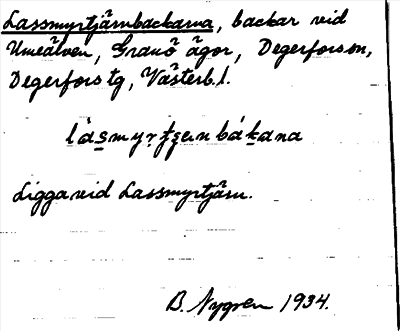 Lassmyrtjärnbackarna, backar vid
Umeälven, Granö ägor, Degerfors sn,
Degerfors tg, Västerb. l.
làsmyrtʂen bákana
Ligga vid Lassmyrtjärn.
B. Nygren 1934.